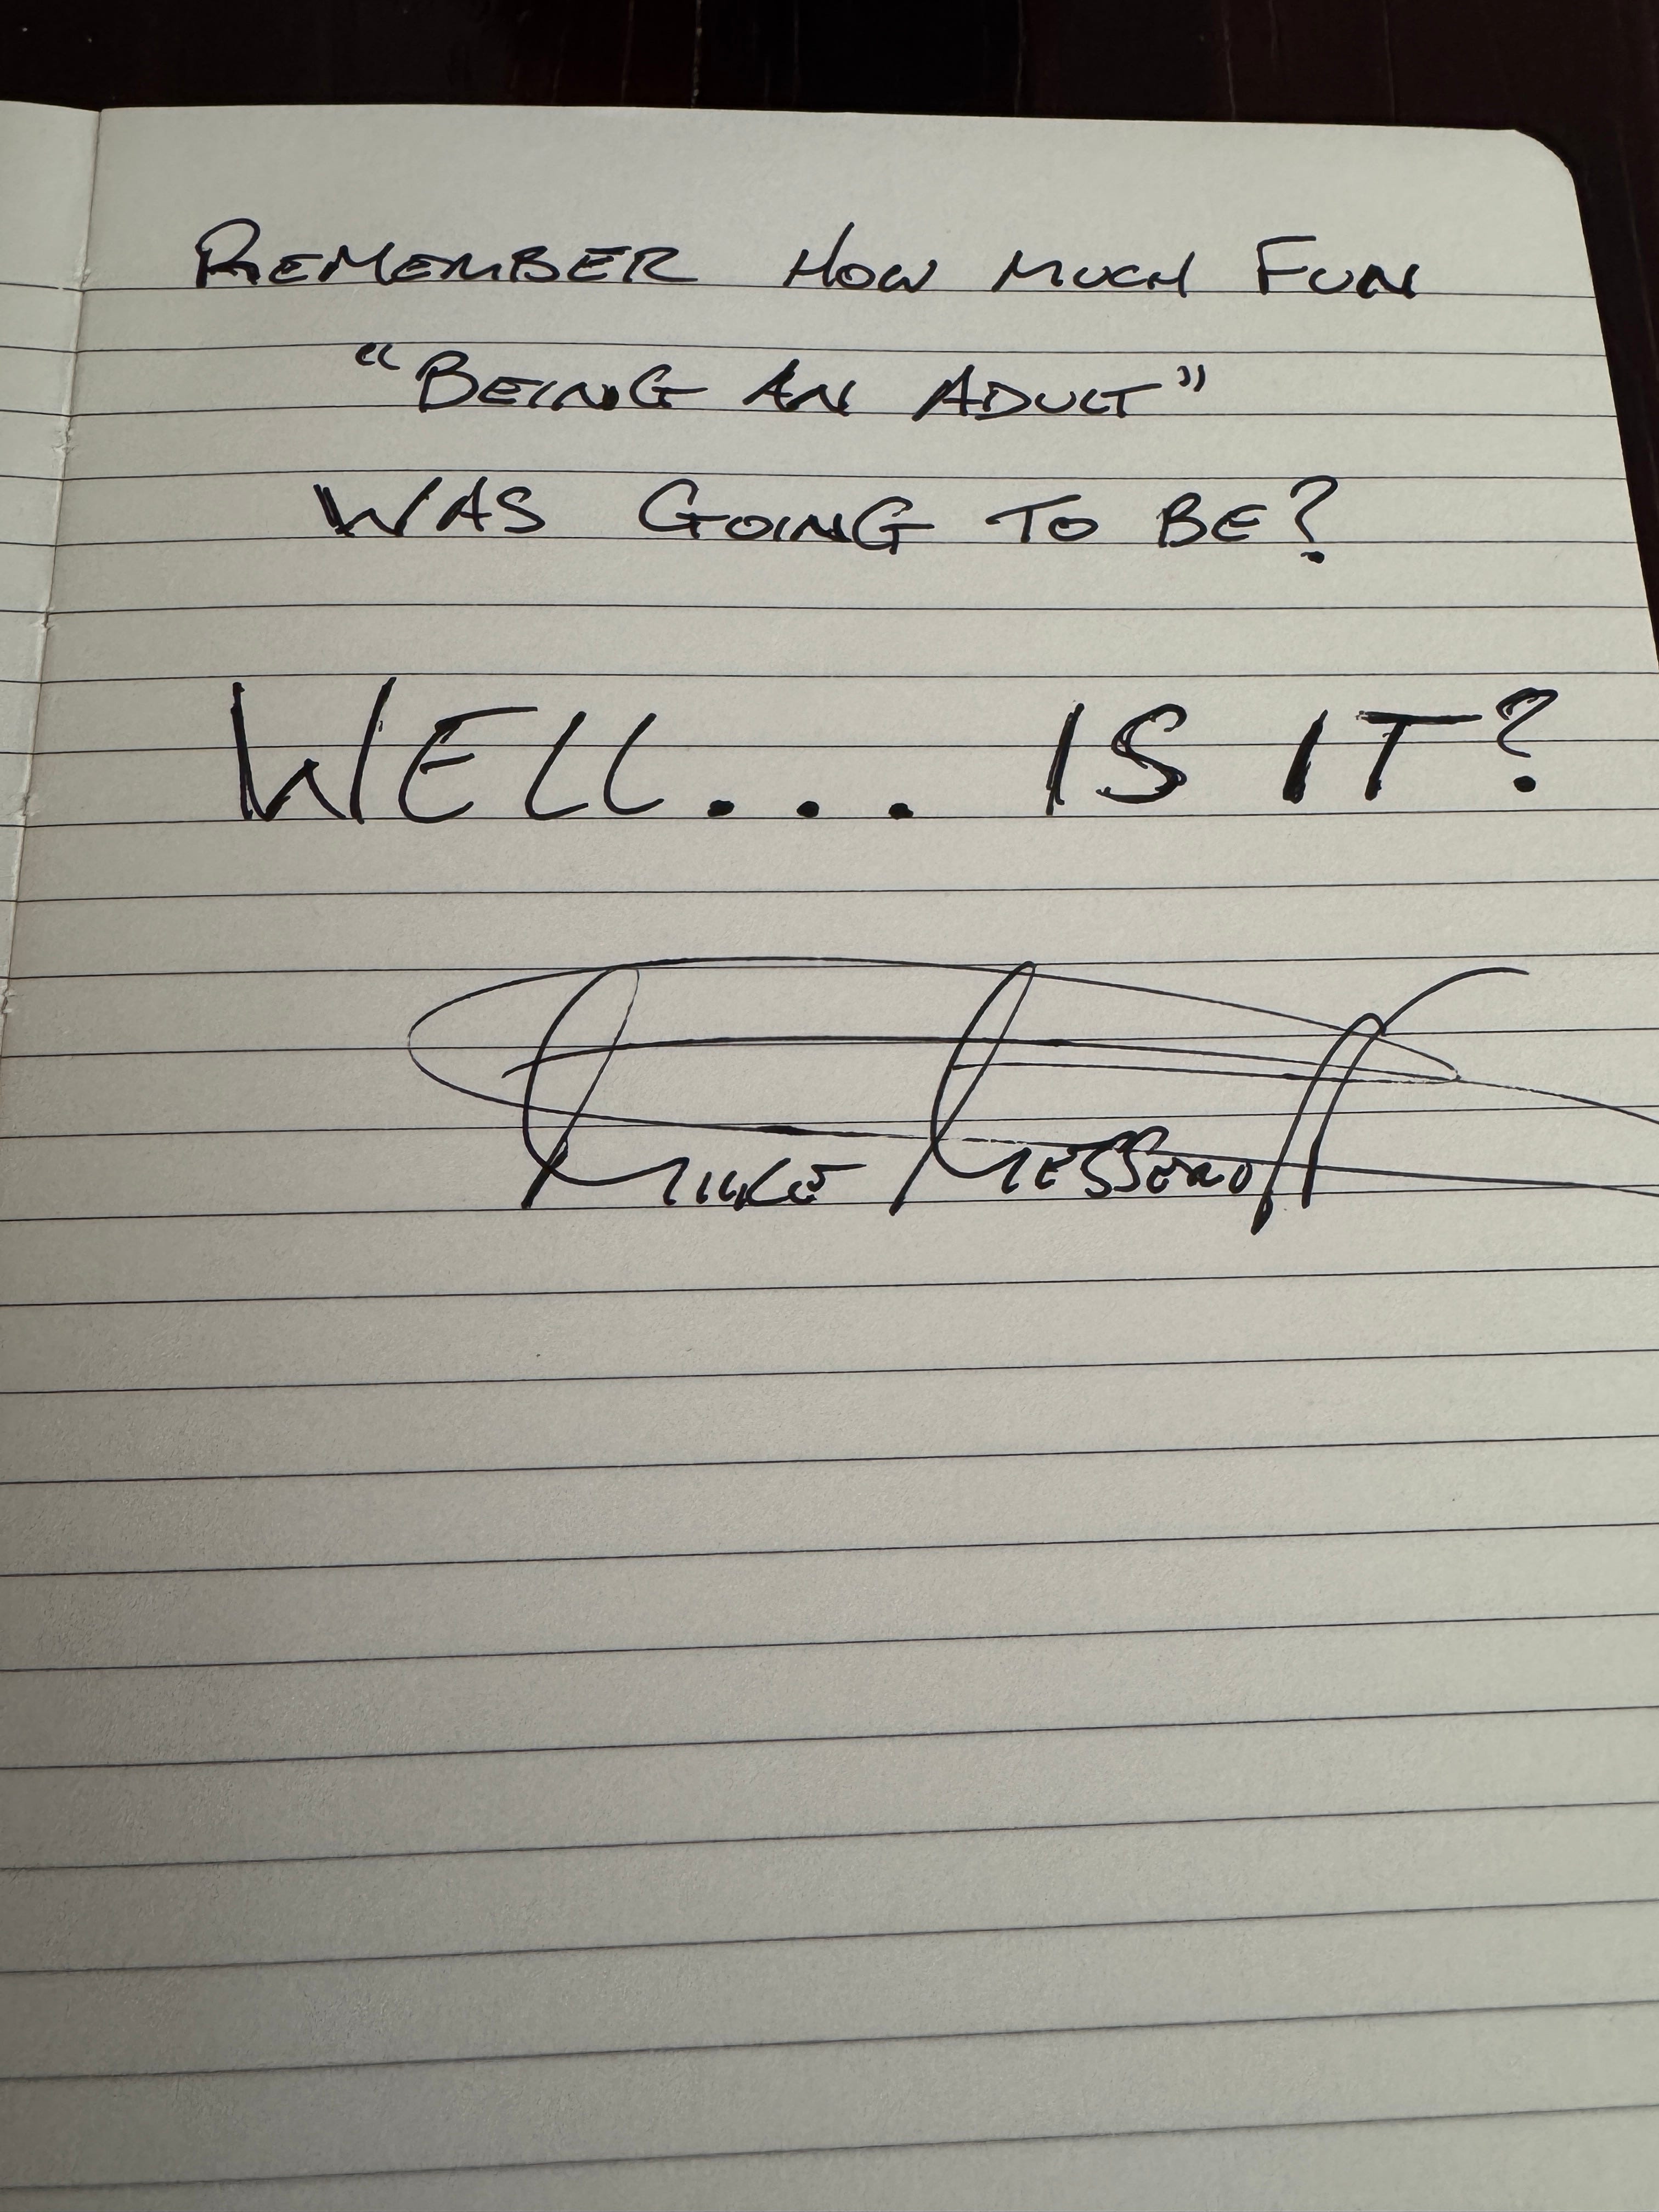 REMEMBER HOW MUCH FUN
“BEING AN ADULT”
WAS GOING TO BE?
WELL... IS IT?
MIKE MESSEROFF